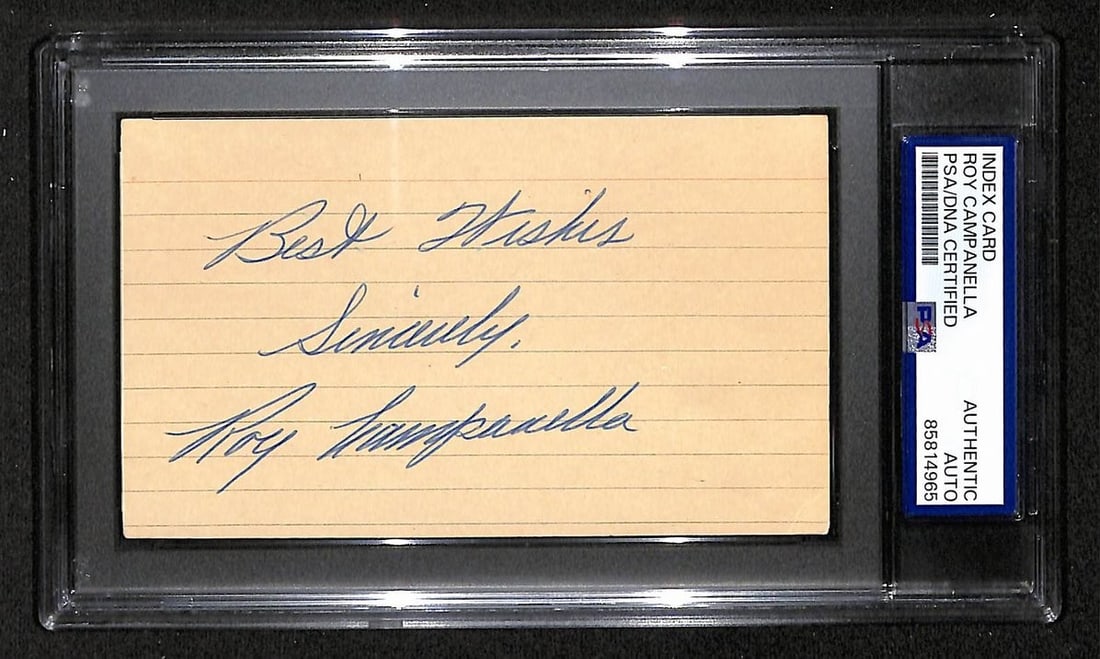 Best Wishes
Sincerely,
Roy Campanella
INDEX CARD
ROY CAMPANELLA
PSA/DNA CERTIFIED
AUTHENTIC
AUTO
85814965
PSA